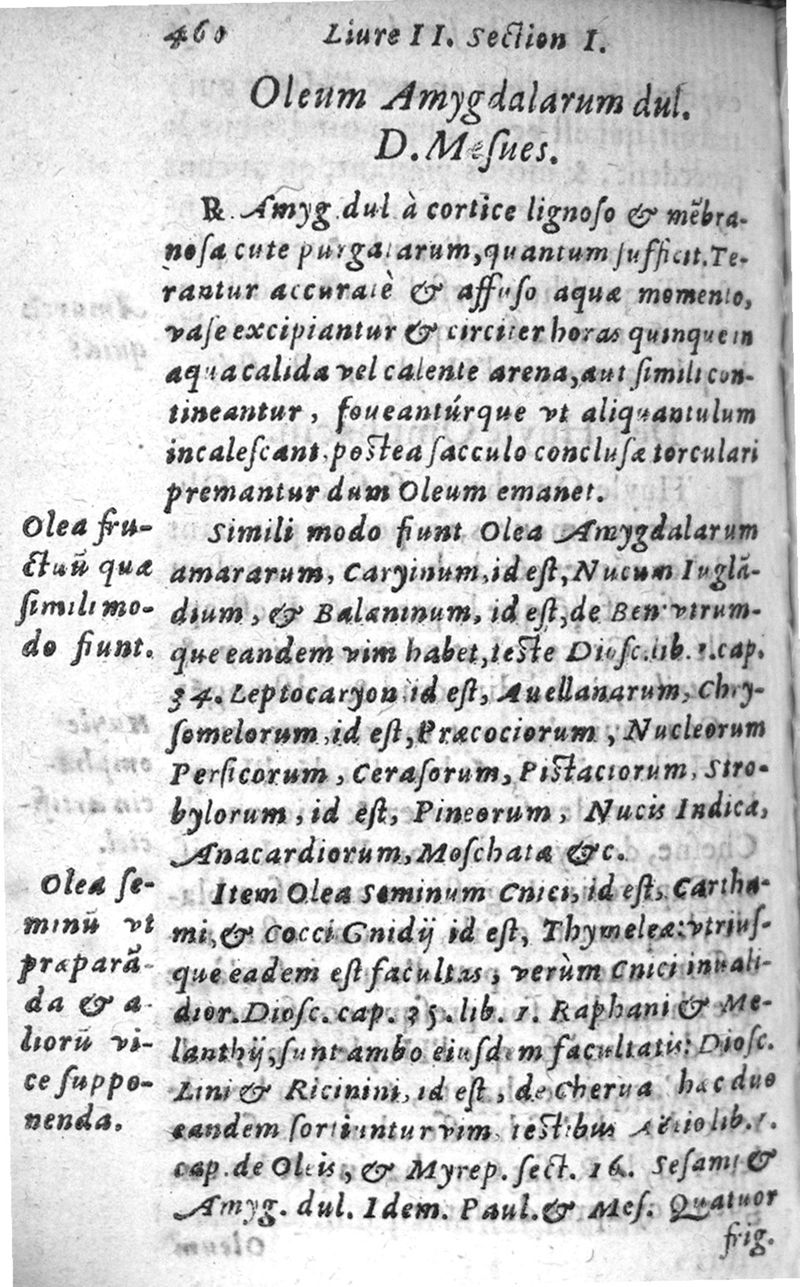 460 Liure II. Section I.
Oleum Amygdalarum dul.
D. Meſues.
℞. Amyg. dul à cortice lignoſo & mẽbra-
noſa cute purgatarum, quantum ſufficit. Te-
rantur accuratè & affuſo aquæ momento,
vaſe excipiantur & circiter horas quinque in
aqua calida vel calente arena, aut ſimili con-
tineantur, foueantúrque vt aliquantulum
incaleſcant. poſtea ſacculo concluſæ torculari
premantur dum Oleum emanet.
Olea fru-
ctuũ quæ
ſimili mo-
do fiunt.
Simili modo fiunt Olea Amygdalarum
amararum, Caryinum, id eſt, Nucum Iuglã-
dium, & Balaninum, id eſt, de Ben vtrum-
que eandem vim habet, teſte Dioſc. lib. 1. cap.
34. Leptocaryon id eſt, Auellanarum, Chry-
ſomelorum, id eſt, Præcociorum, Nucleorum
Perſicorum, Ceraſorum, Piſtaciorum, Stro-
bylorum, id eſt, Pineorum, Nucis Indicæ,
Anacardiorum, Moſchatæ &c.
Olea ſe-
minũ vt
præparã-
da & a-
liorũ vi-
ce ſuppo-
nenda.
Item Olea Seminum Cnici, id eſt, Cartha-
mi, & Cocci Gnidij id eſt, Thymeleæ: vtriuſ-
que eadem eſt facultas, verùm Cnici inuali-
dior. Dioſc. cap. 35. lib. 1. Raphani & Me-
lanthij, ſunt ambo eiuſdem facultatis: Dioſc.
Lini & Ricinini, id eſt, de Cherua hæc duo
eandem ſortiuntur vim, teſtibus Aëtio lib. 1.
cap. de Oleis, & Myrep. ſect. 16. Seſami &
Amyg. dul. Idem. Paul. & Meſ. Quatuor
frig.